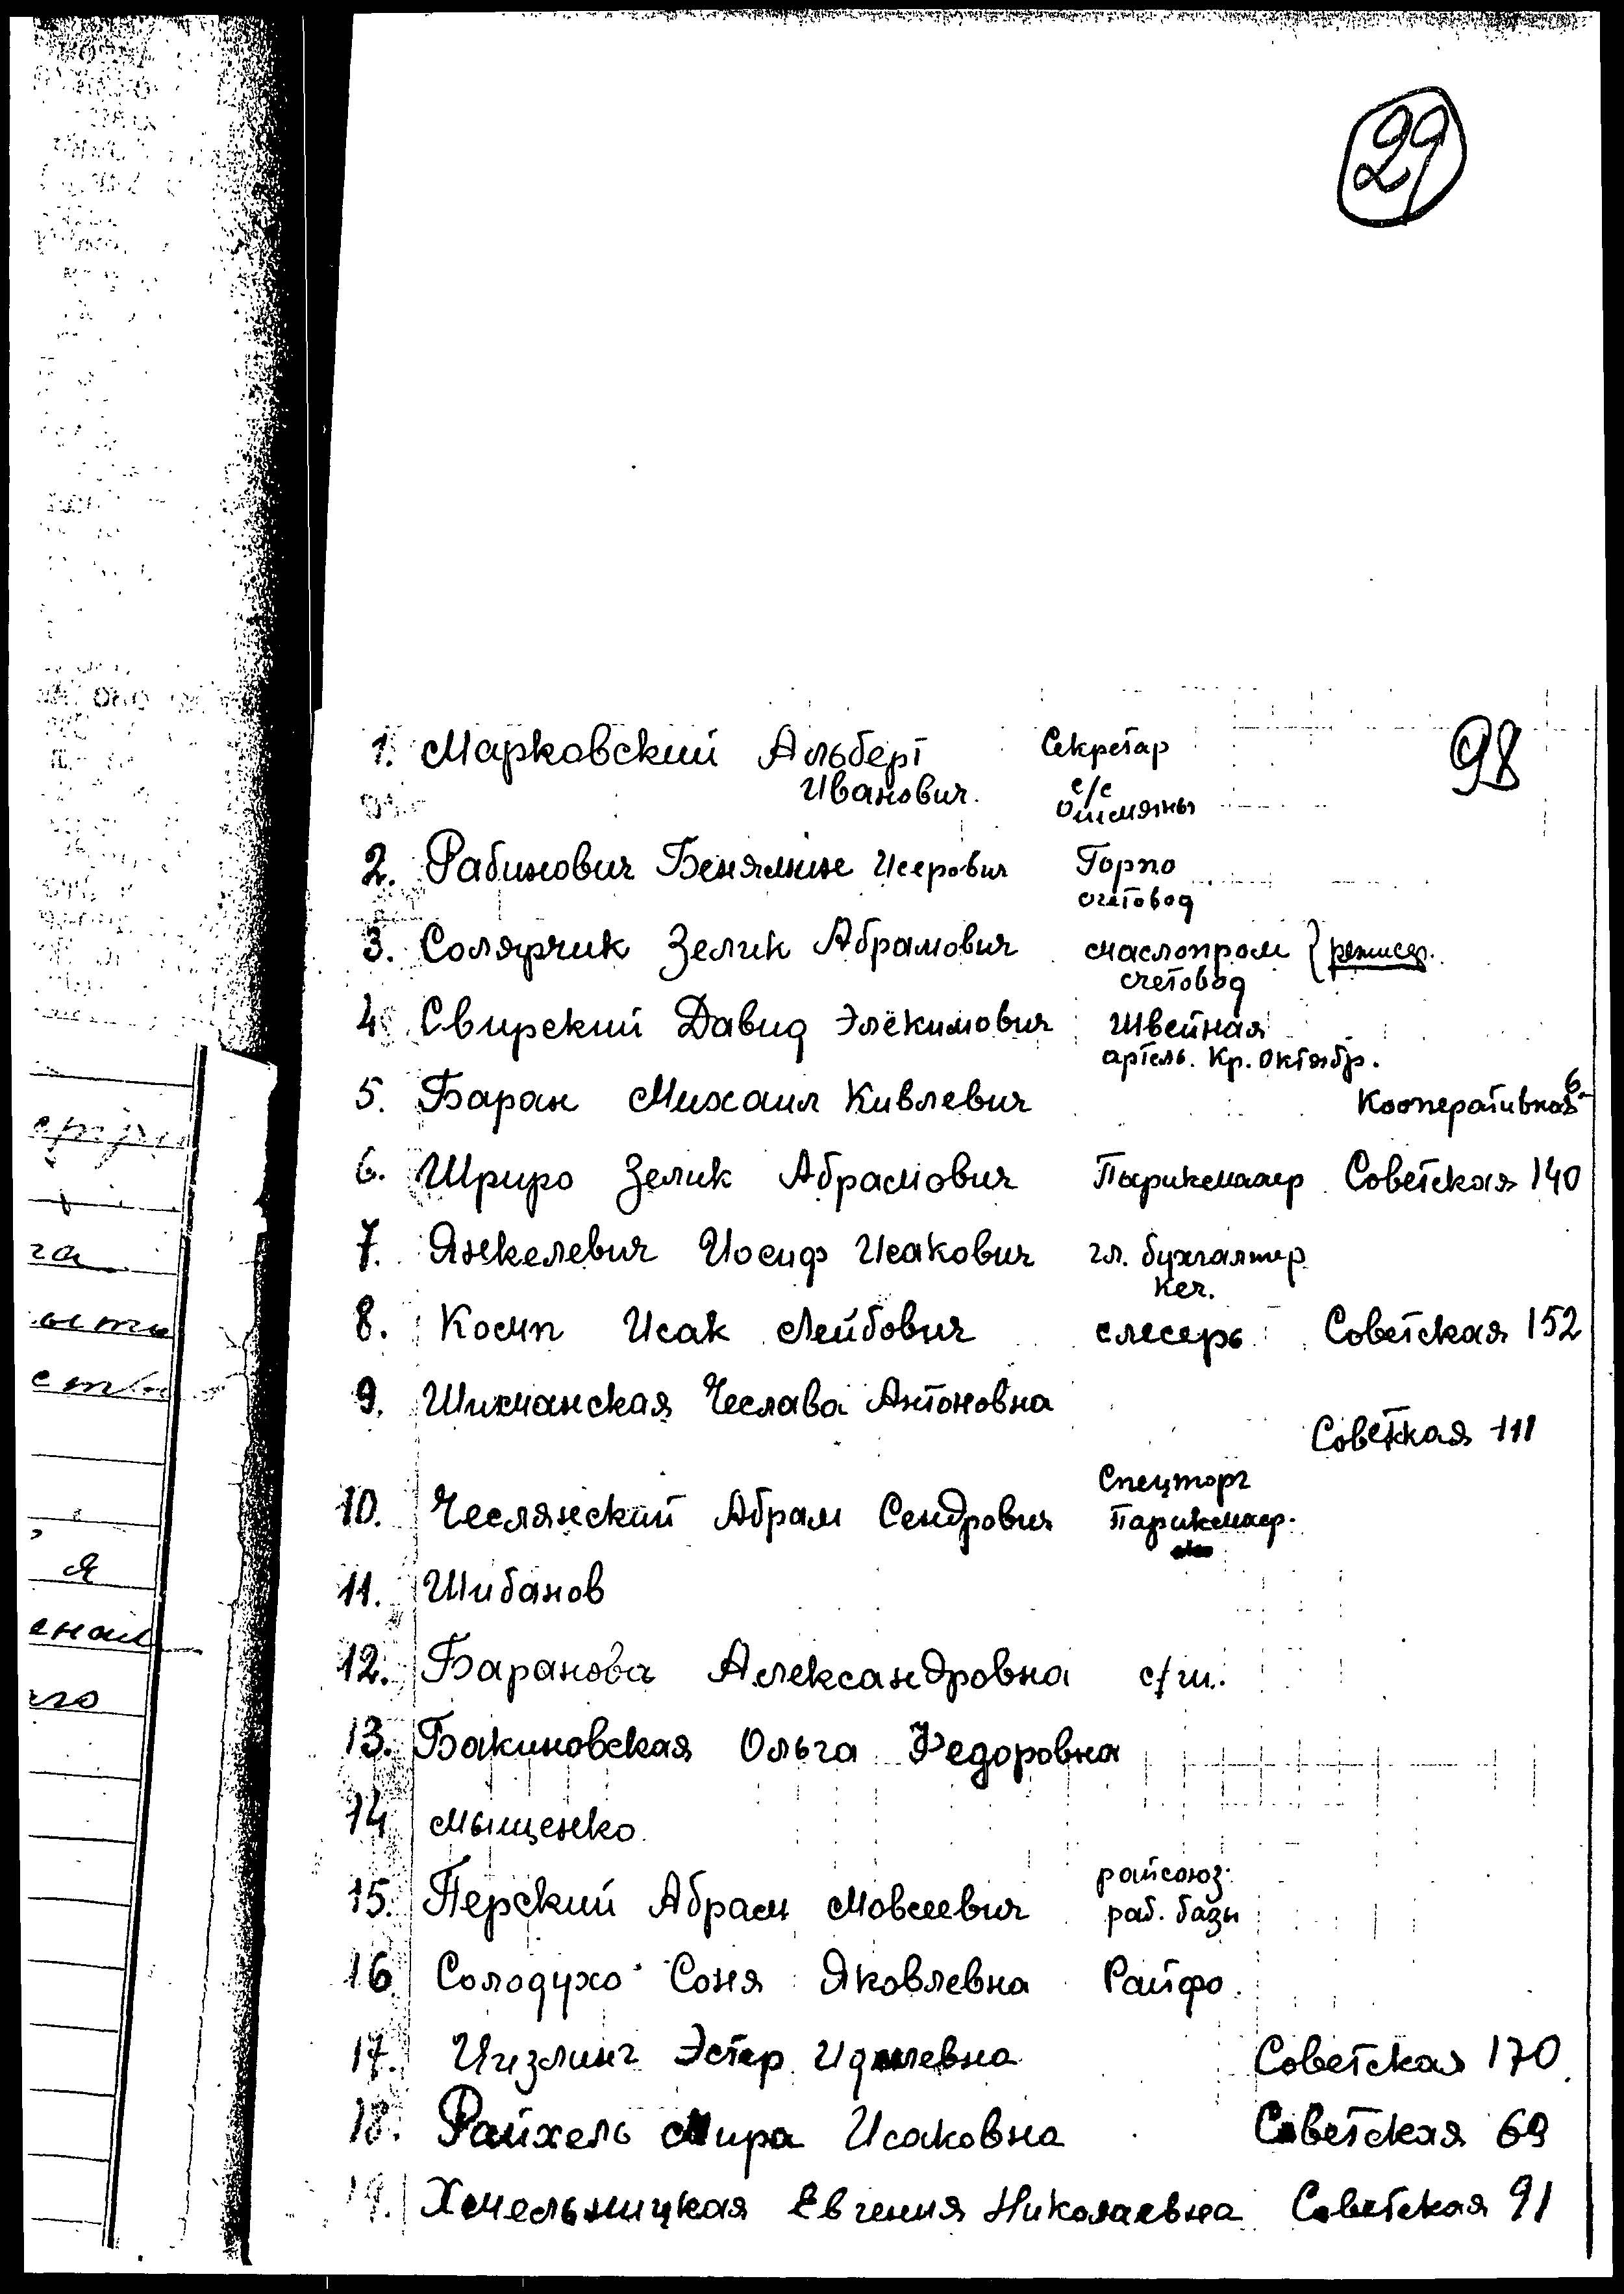 29
98
1. Марковский Альберт Секретар
Иванович. с/с
Ошмяны
2. Рабинович Бенямин Исерович Горпо
счетовод
3. Солярчик Зелик Абрамович маслопром } режисер.
счетовод
4. Свирский Давид Элёкимович Швейная
артель. Кр. Октябр.
5. Баран Михаил Кивлевич Кооперативная 6
6. Шриро Зелик Абрамович Парикмахер Советская 140
7. Янкелевич Иосиф Исакович гл. бухгалтер
кеч.
8. Космп Исак Лейбович слесерь Советская 152
9. Шикманская Чеслава Антоновна
Советкая 111
Спецторг
10. Чеслянский Абрам Сендрович Парикмахер.
11. Шибанов
12. Баранова Александровна с/ш.
13. Бакиновская Ольга Федоровна
14 Мыщенко.
райсоюз.
15. Перский Абрам Мовшевич раб. базы
16 Солодухо Соня Яковлевна Райфо.
17. Эстер Советская 170
18. Райхель Мира Исаковна Советская 69
19. Хмельницкая Евгения Николаевна Советская 91
га
я